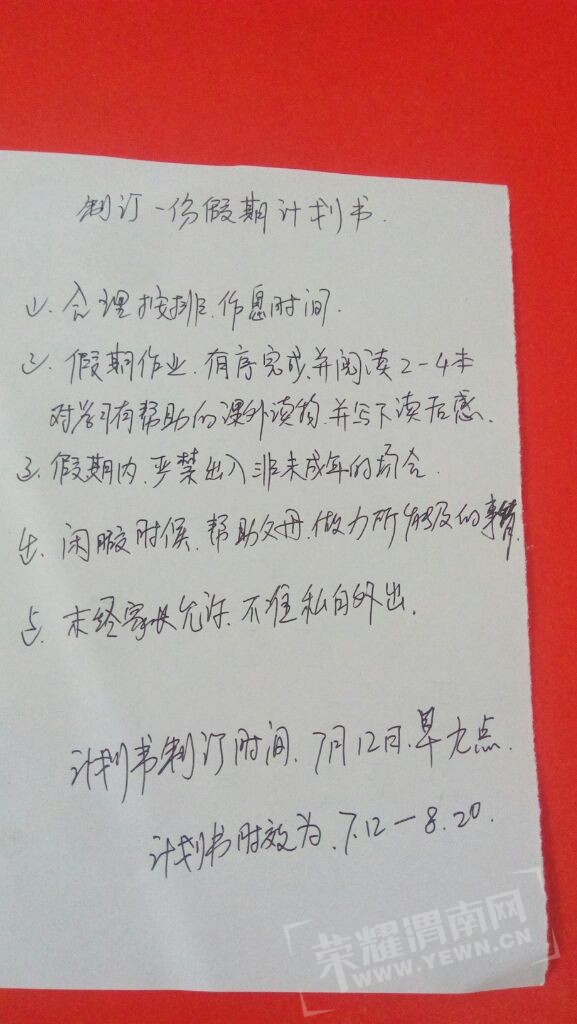 制订一份假期计划书.
1. 合理按排.作息时间.
2. 假期作业.有序完成.并阅读2-4本
对学习有帮助的课外读物.并写下读后感.
3. 假期内.严禁出入非未成年的场合.
4. 闲暇时候.帮助父母.做力所能及的事情
5. 未经家长允许.不准私自外出.
计划书制订时间.7月12日.早九点.
计划书时效为.7.12—8.20.
荣耀渭南网
WWW.YEWN.CN